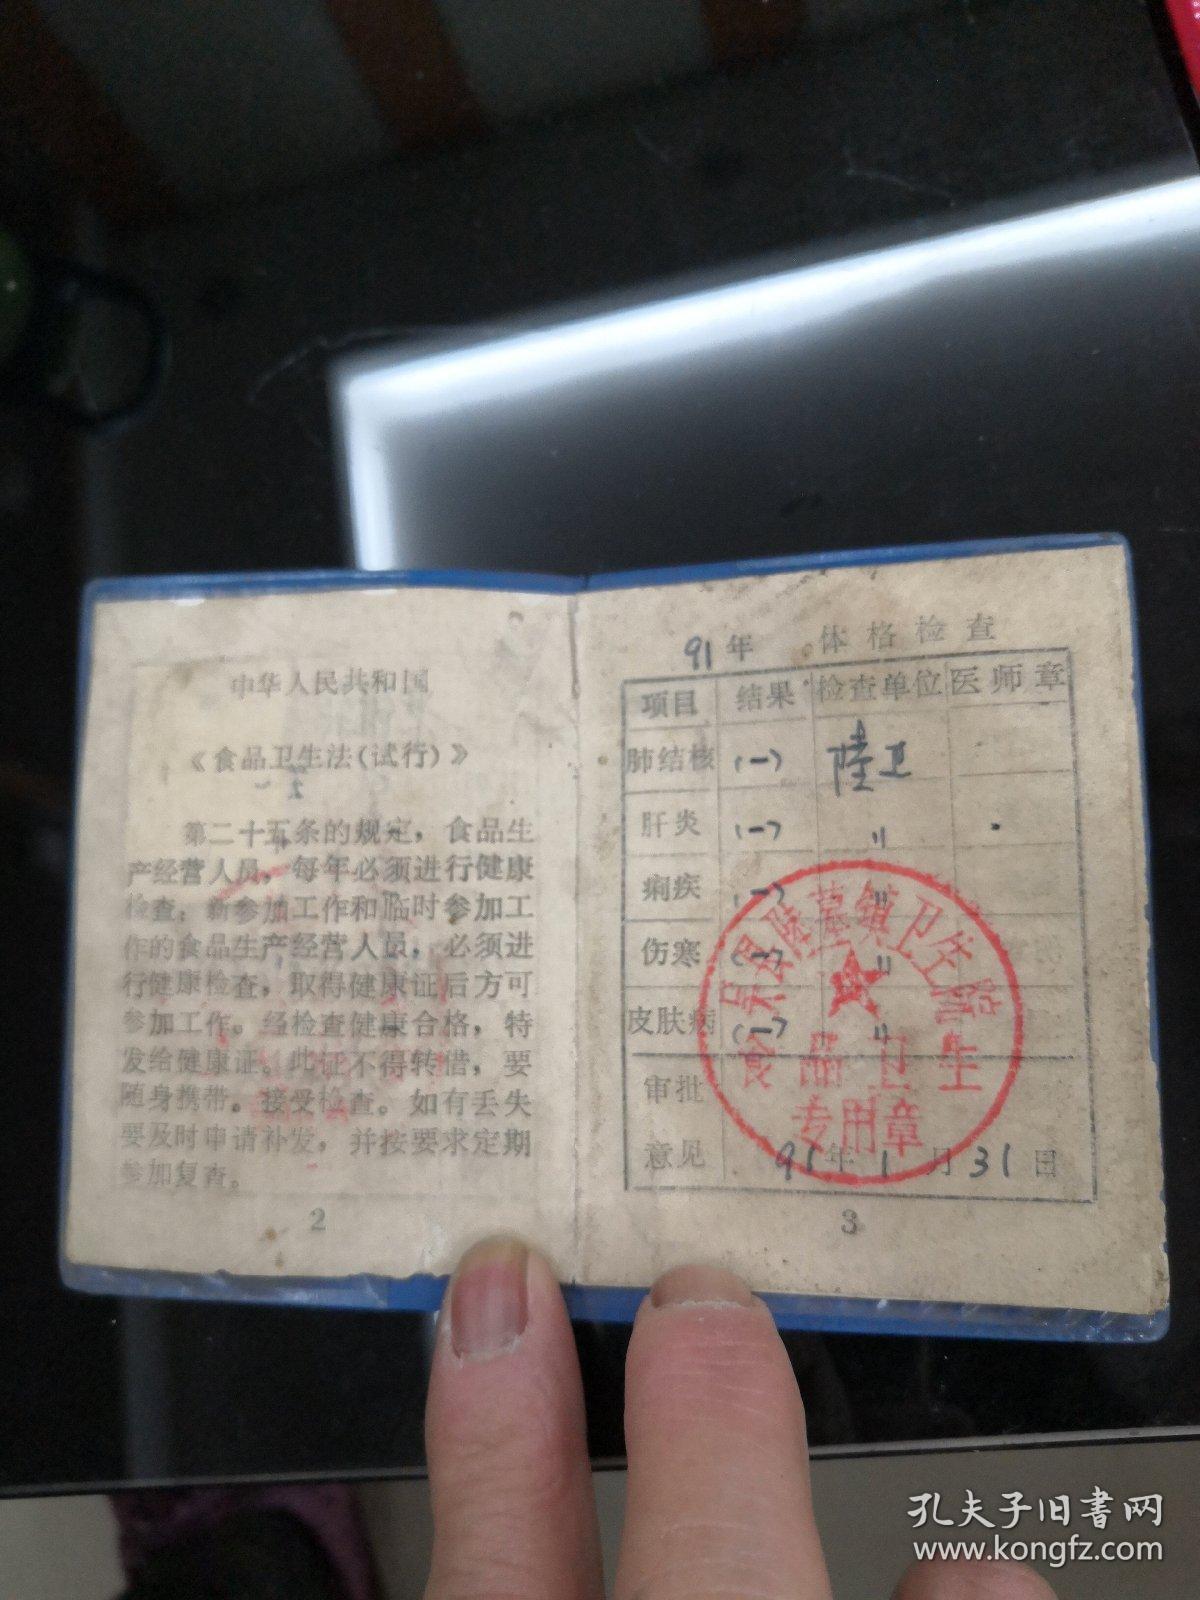 中华人民共和国
《食品卫生法(试行)》
第二十五条的规定，食品生
产经营人员，每年必须进行健康
检查；新参加工作和临时参加工
作的食品生产经营人员，必须进
行健康检查，取得健康证后方可
参加工作。经检查健康合格，特
发给健康证。此证不得转借，要
随身携带。接受检查。如有丢失
要及时申请补发，并按要求定期
参加复查。
2
91年 体格检查
项目 结果 检查单位 医师章
肺结核 (一) 陸卫
肝炎 (一) 〃
痢疾 (一) 〃
伤寒 (一) 〃
皮肤病 (一) 〃
审批
意见 91年1月31日
吴县陸墓镇卫生院
食品卫生
专用章
3
孔夫子旧书网
www.kongfz.com